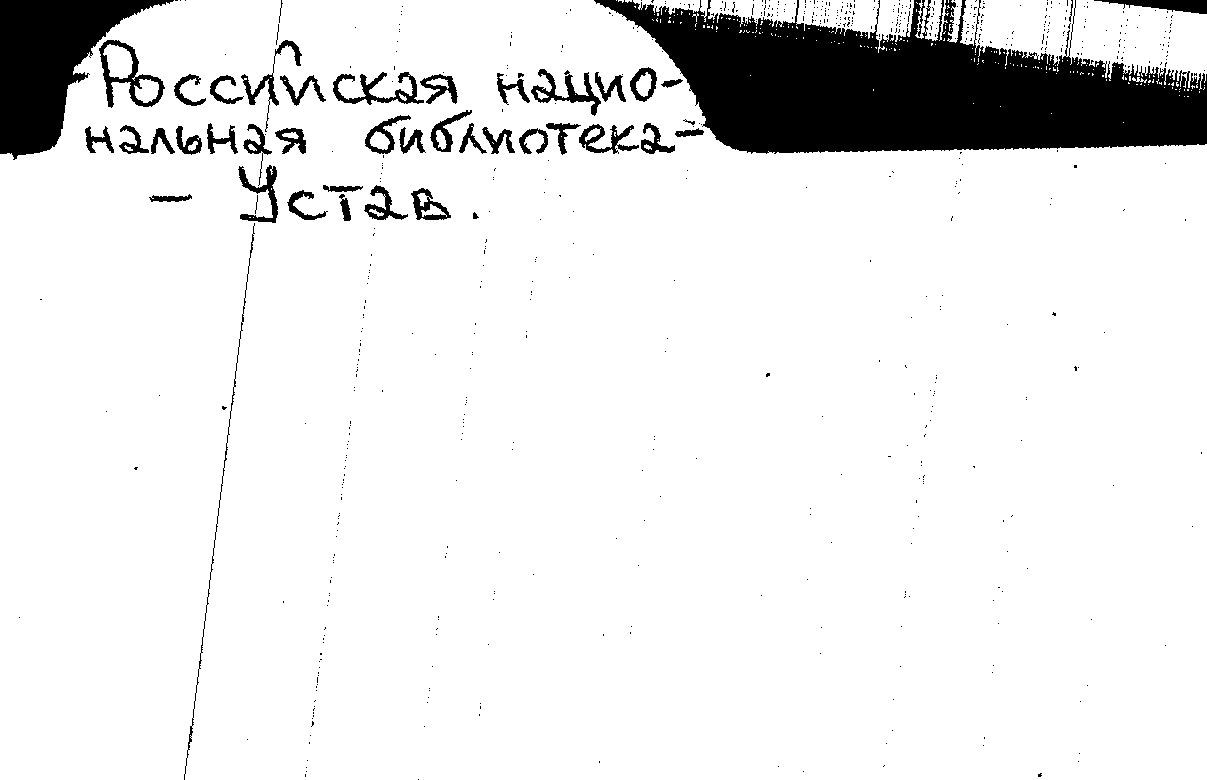 - Российская нацио-
нальная библиотека -
- Устав.